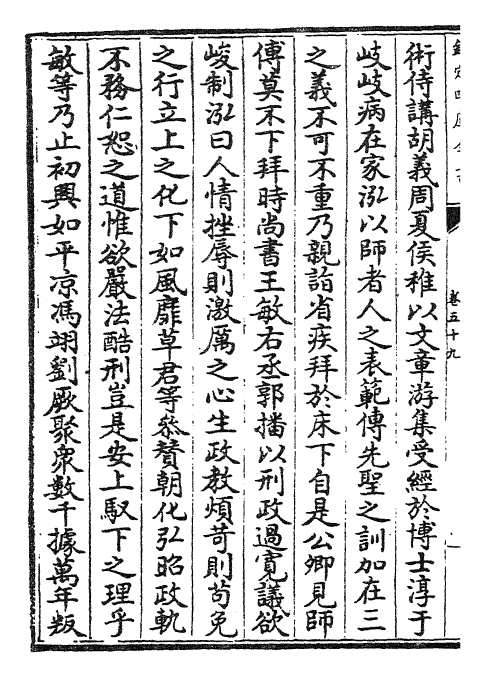 術侍講胡義周夏侯稚以文章游集受經於博士淳于
岐岐病在家泓以師者人之表範傳先聖之訓加在三
之義不可不重乃親詣省疾拜於床下自是公卿見師
傅莫不下拜時尚書王敏右丞郭播以刑政過寛議欲
峻制泓曰人情挫辱則激厲之心生政教煩苛則苟免
之行立上之化下如風靡草君等叅贊朝化弘昭政軌
不務仁恕之道惟欲嚴法酷刑豈是安上馭下之理乎
敏等乃止初興如平凉馮翊劉厥聚衆數千據萬年叛
卷五十九